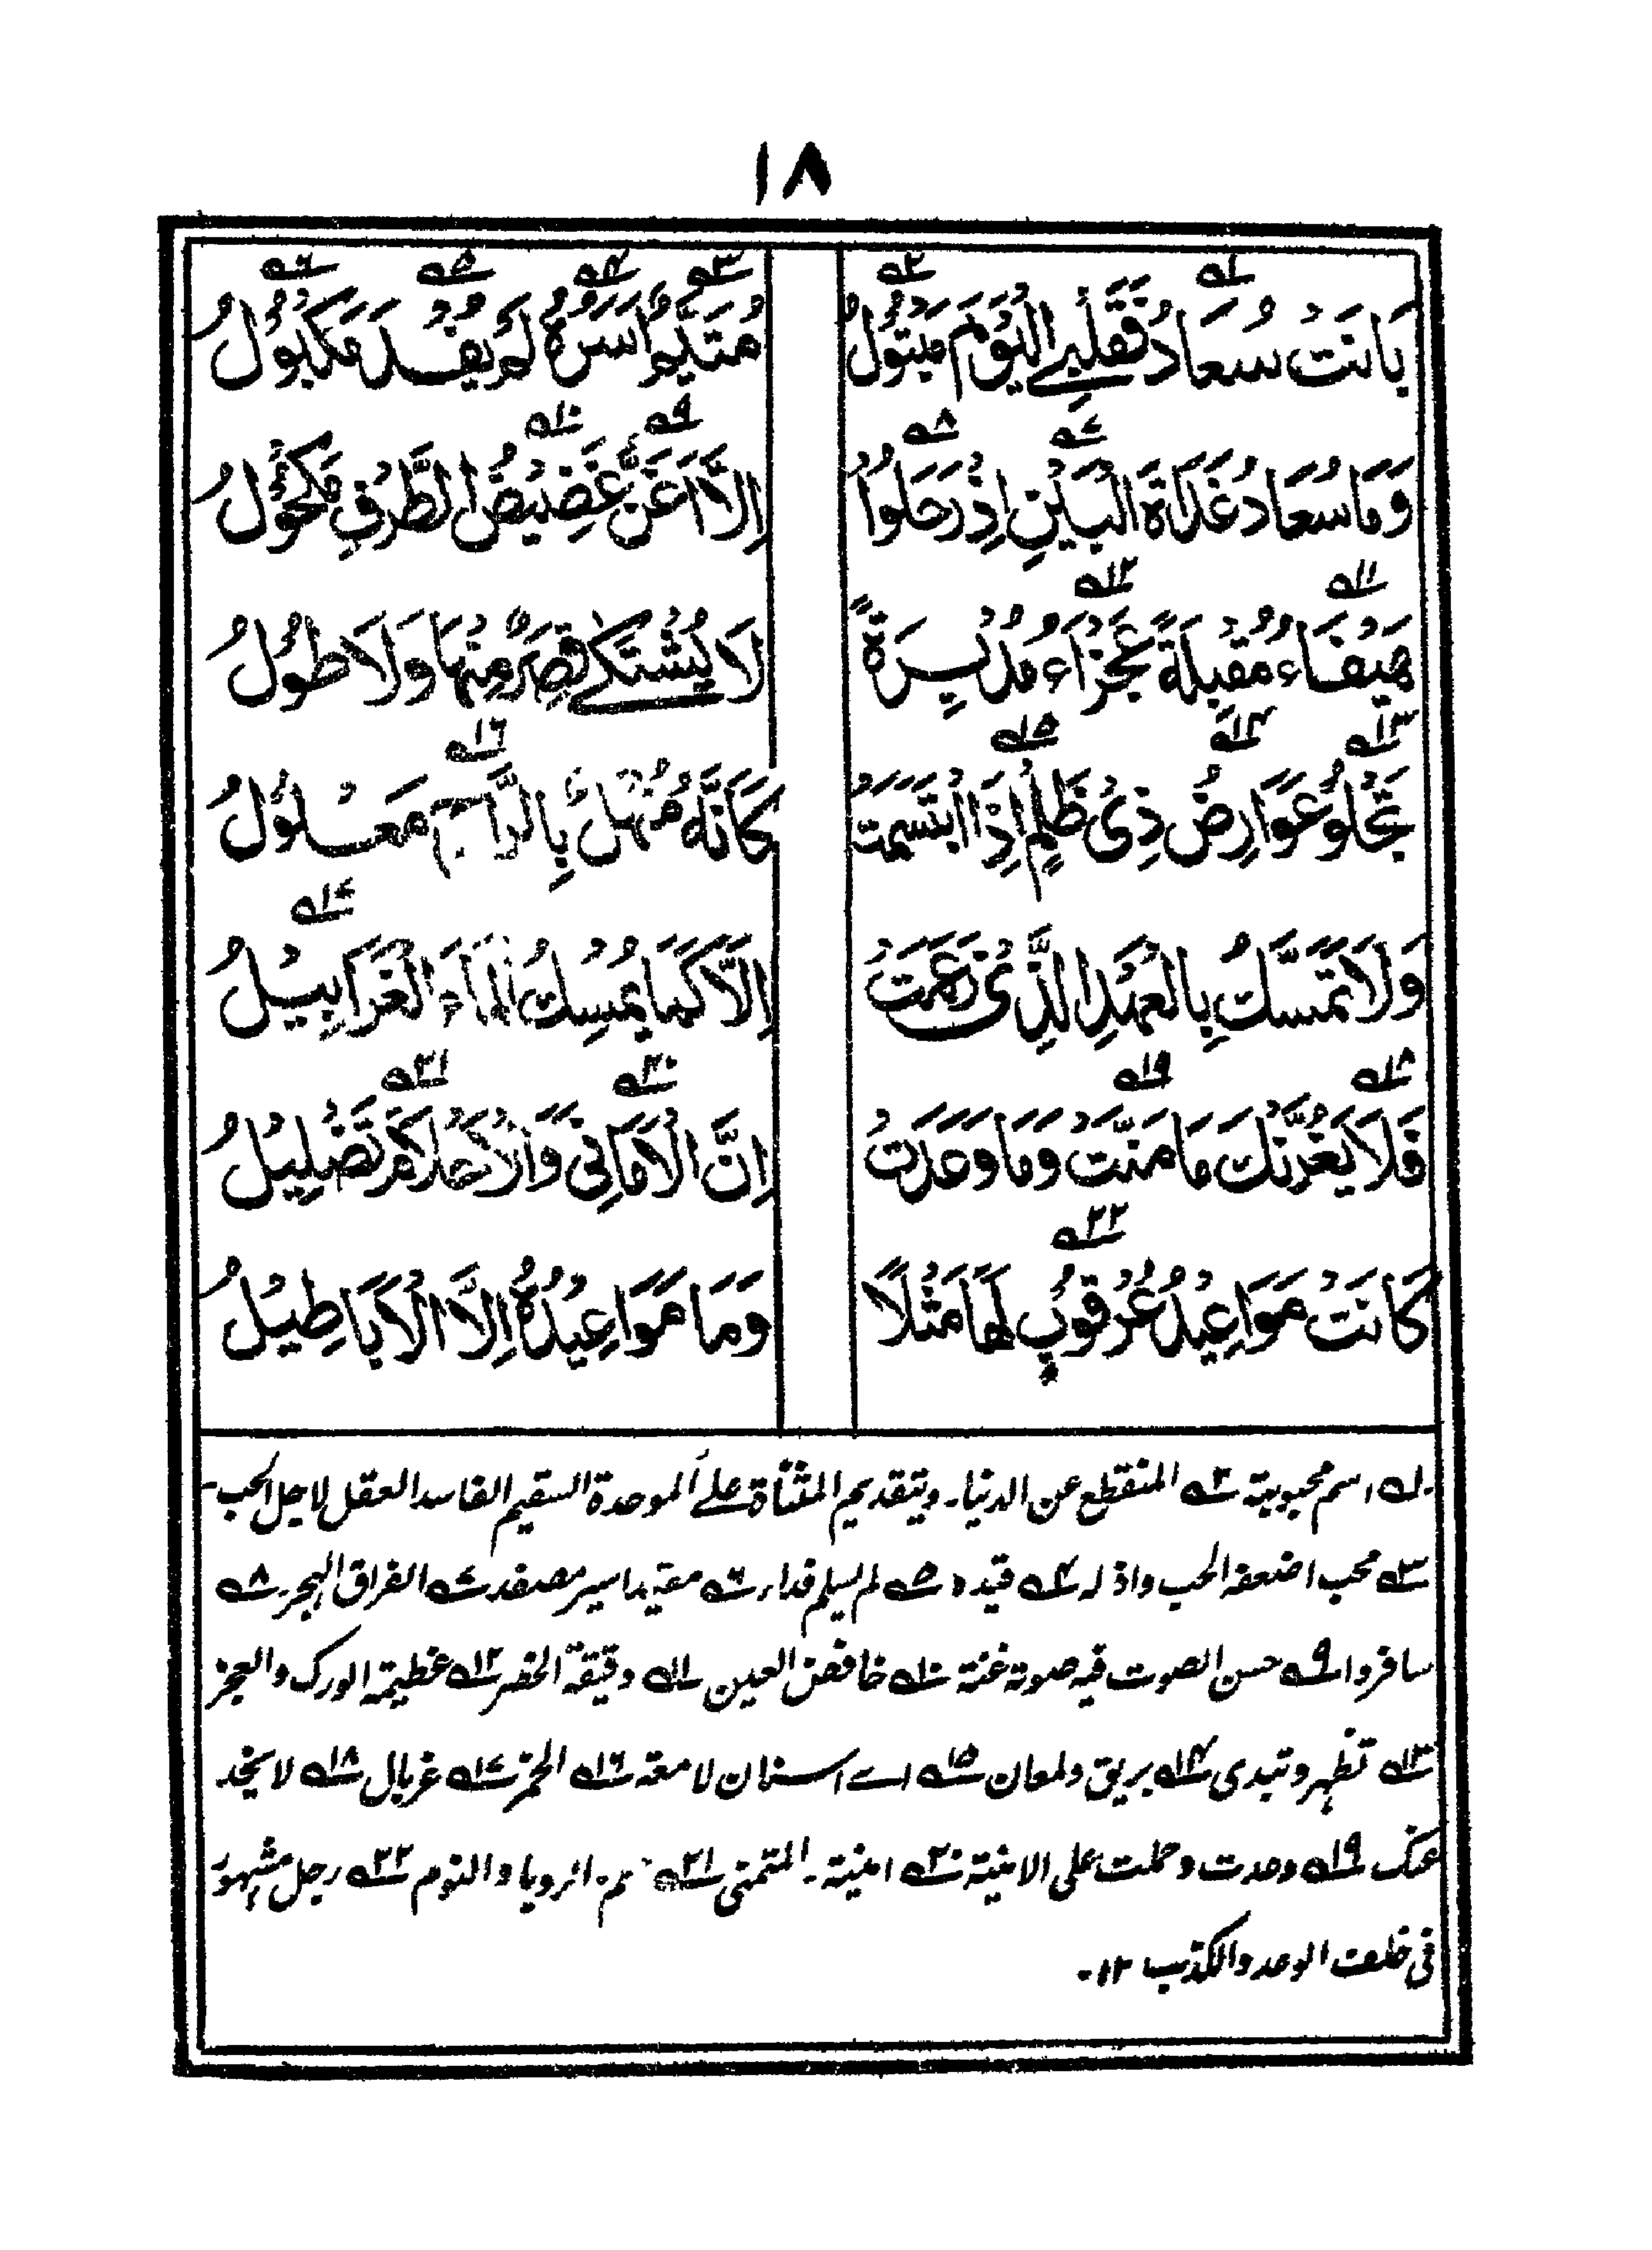 ١٨
بَانَتْ سُعَادُ فَقَلْبِي الْيَوْمَ مَبْتُولُ مُتَيَّمٌ اَسَرَهٗ لَمْ يُفْدَ مَكْبُوْلُ
وَمَا سُعَادُ غَدَاةَ الْبَيْنِ اِذْ رَحَلُوْا اِلَّا اَغَنُّ غَضِيْضُ الطَّرْفِ مَكْحُوْلُ
هَيْفَاءُ مُقْبِلَةً عَجْزَاءُ مُدْبِرَةً لَا يُشْتَكٰى قِصَرٌ مِنْهَا وَلَا طُوْلُ
تَجْلُوْ عَوَارِضَ ذِىْ ظَلْمٍ اِذَا ابْتَسَمَتْ كَاَنَّهٗ مُنْهَلٌ بِالرَّاحِ مَعْلُوْلُ
وَلَا تَمَسَّكُ بِالْعَهْدِ الَّذِىْ زَعَمَتْ اِلَّا كَمَا يُمْسِكُ الْمَاءَ الْغَرَابِيْلُ
فَلَا يَغُرَّنْكَ مَا مَنَّتْ وَمَا وَعَدَتْ اِنَّ الْاَمَانِىَّ وَالْاَحْلَامَ تَضْلِيْلُ
كَانَتْ مَوَاعِيْدُ عُرْقُوْبٍ لَهَا مَثَلًا وَمَا مَوَاعِيْدُهٗ اِلَّا الْاَبَاطِيْلُ
١ اسم محبوبتة ٢ المنقطع عن الدنيا۔ وبتقديم المثناة على الموحدة السقيم الفاسد العقل لاجل الحب۔
٣ محب اضعفه الحب واذله ٤ قيده ٥ لم يسلم فداء ٦ مقيد اسير مصفد ٧ الفراق الهجر ٨
سافروا ٩ حسن الصوت فيه صوتة غنة ١٠ خافض العين ١١ دقيقة الخصر ١٢ عظيمة الورك والعجز
١٣ تظهر وتبدى ١٤ بريق ولمعان ١٥ اے اسنان لامعة ١٦ الخمر ١٧ غربال ١٨ لا يخد
عنك ١٩ وعدت وحملت على الامنية ٢٠ امنية۔ المتمنى ٢١ الرويا والنوم ٢٢ رجل مشهور
فى خلف الوعد والكذب ١٢۔